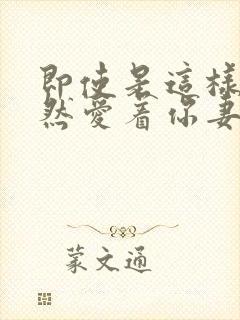 即使是這樣
然愛着你妻
蒙文通